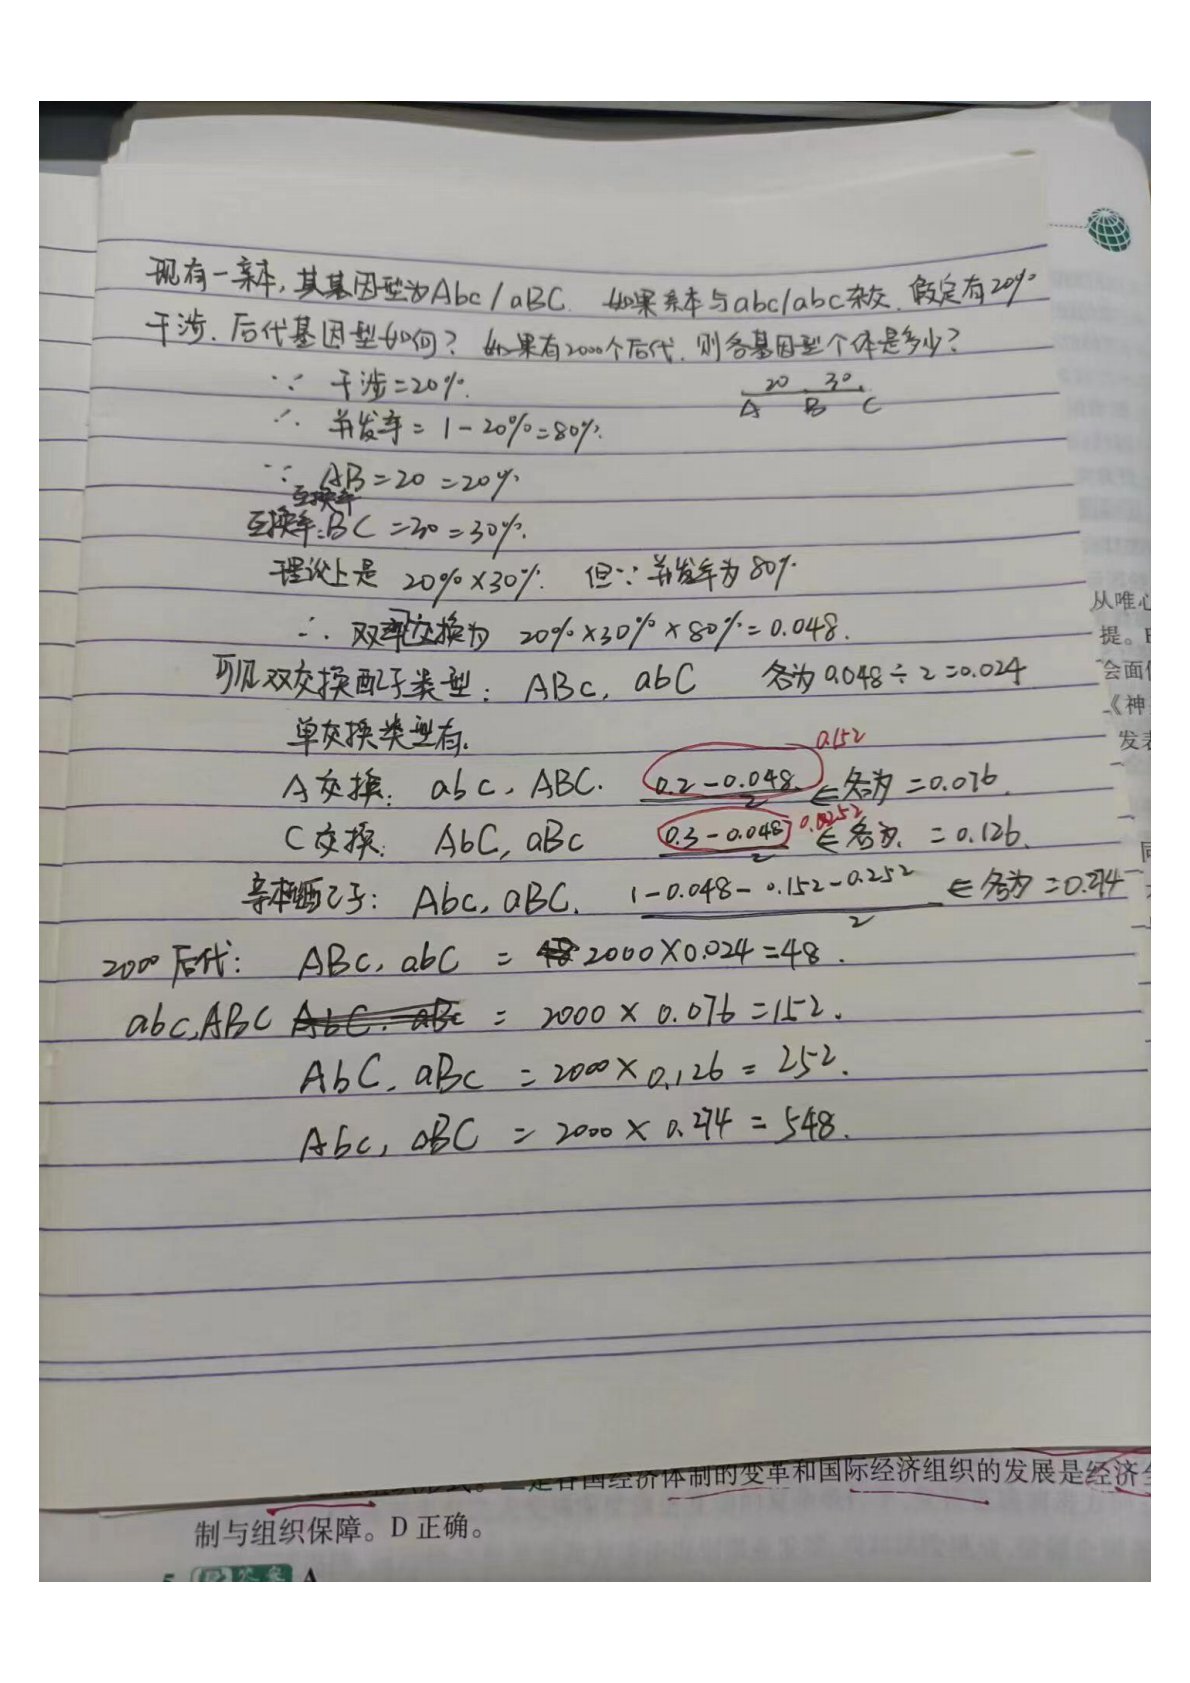 现有一亲本,其基因型为Abc/aBC. 如果亲本与abc/abc杂交.假定有20%
干涉.后代基因型如何?如果有2000个后代.则各基因型个体是多少?
∵ 干涉=20%.
20 30
A B C
∴ 并发率=1-20%=80%.
∵ AB=20=20%
互换率
互换率:BC=30=30%.
理论上是 20%×30%. 但∵并发率为80%
∴ 双交换为 20%×30%×80%=0.048.
可见双交换配子类型: ABc, abC 各为0.048÷2=0.024
单交换类型有.
0.152
A交换: abc, ABC. 0.2-0.048/2 ⇐各为=0.076.
C交换: AbC, aBc 0.3-0.048/2 0.0252 ⇐各为.=0.126.
亲本配子: Abc, aBC. 1-0.048-0.152-0.252/2 ⇐各为=0.274
2000后代: ABc, abC = 2000×0.024=48.
abc,ABC AbC. aBc = 2000×0.076=152.
AbC, aBc = 2000×0.126=252.
Abc, aBC = 2000×0.274=548.
从唯心
提。
会面
《神
发表
是各国经济体制的变革和国际经济组织的发展是经济全
制与组织保障。D正确。
5 答案 A